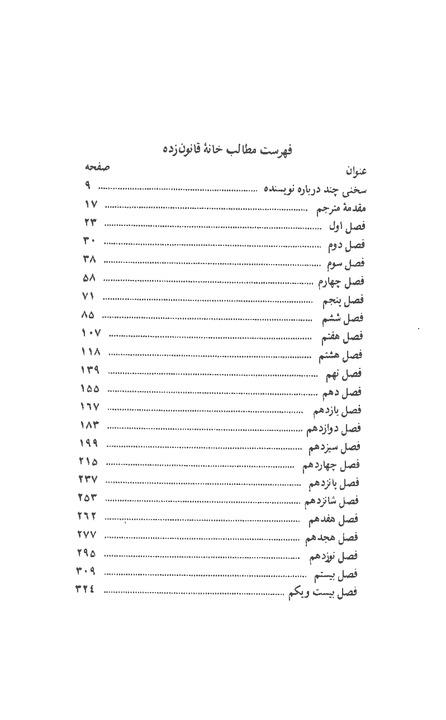 فهرست مطالب خانهٔ قانون‌زده
عنوان صفحه
سخنی چند درباره نویسنده ........ ۹
مقدمهٔ مترجم ........ ۱۷
فصل اول ........ ۲۳
فصل دوم ........ ۳۰
فصل سوم ........ ۳۸
فصل چهارم ........ ۵۸
فصل پنجم ........ ۷۱
فصل ششم ........ ۸۵
فصل هفتم ........ ۱۰۷
فصل هشتم ........ ۱۱۸
فصل نهم ........ ۱۳۹
فصل دهم ........ ۱۵۵
فصل یازدهم ........ ۱۶۷
فصل دوازدهم ........ ۱۸۳
فصل سیزدهم ........ ۱۹۹
فصل چهاردهم ........ ۲۱۵
فصل پانزدهم ........ ۲۳۷
فصل شانزدهم ........ ۲۵۳
فصل هفدهم ........ ۲۶۲
فصل هجدهم ........ ۲۷۷
فصل نوزدهم ........ ۲۹۵
فصل بیستم ........ ۳۰۹
فصل بیست ویکم ........ ۳۲۴